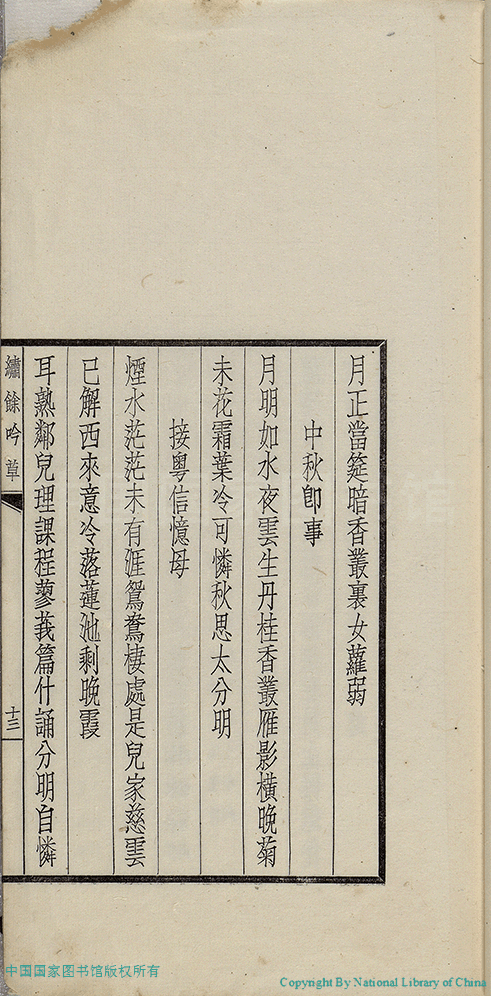 月正當筵暗香叢裏女蘿弱
中秋卽事
月明如水夜雲生丹桂香叢雁影橫晚菊
未花霜葉冷可憐秋思太分明
接粵信憶母
煙水茫茫未有涯鴛鴦棲處是兒家慈雲
已解西來意冷落蓮池剩晚霞
耳熟鄰兒理課程蓼莪篇什誦分明自憐
繡餘吟草
十三
中国国家图书馆版权所有
Copyright By National Library of China